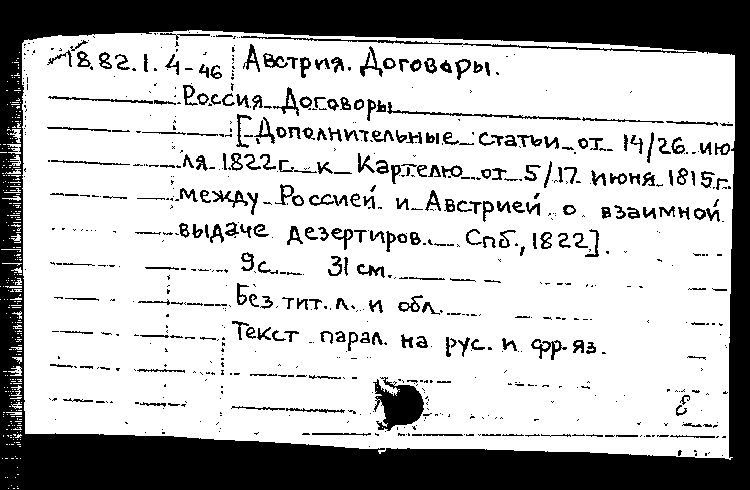 18.82.1.4-46 Австрия. Договоры.
Россия Договоры
[Дополнительные статьи от 14/26 ию-
ля 1822г. к Картелю от 5/17 июня 1815г.
между Россией и Австрией о взаимной
выдаче дезертиров. Спб., 1822].
9с. 31 см.
Без тит. л. и обл.
Текст парал. на рус. и фр. яз.